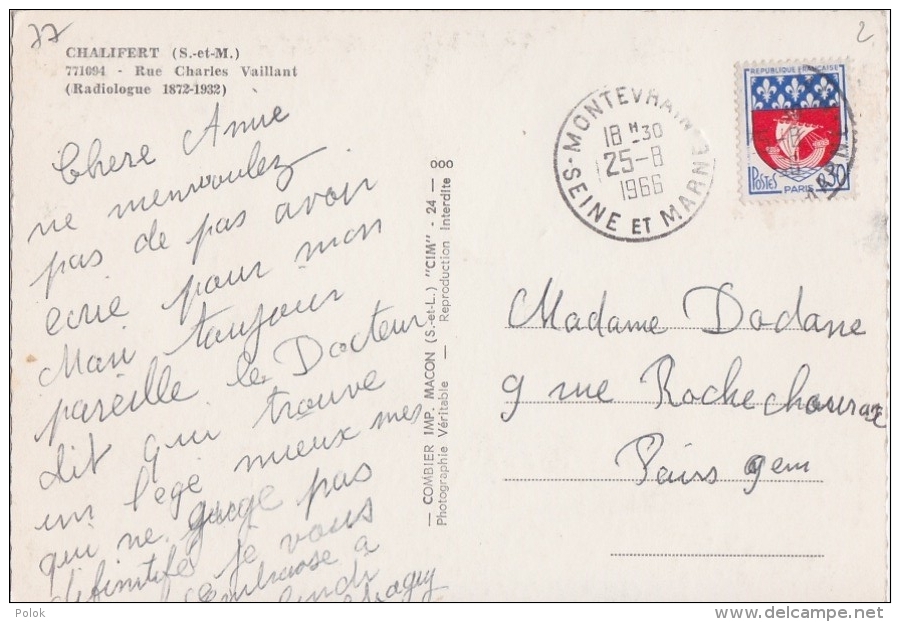 77
2
CHALIFERT (S.-et-M.)
771094 - Rue Charles Vaillant
(Radiologue 1872-1932)
Chere Amie
ne menvoulez
pas de pas avoir
ecrie pour mon
Mari toujour
pareille le Docteur
dit qui trouve
un lege mieux mes
qui ne gage pas
définitife je vous
embrasse a
lundi
ooo
— COMBIER IMP. MACON (S.-et-L.) "CIM" - 24 —
Photographie Véritable — Reproduction Interdite
MONTEVRAIN
18 H 30
25-8
1966
SEINE ET MARNE
REPUBLIQUE FRANÇAISE
POSTES
0,30
PARIS
Madame Dodane
9 rue Rochechouraz
Paris 9em
Polok
www.delcampe.net